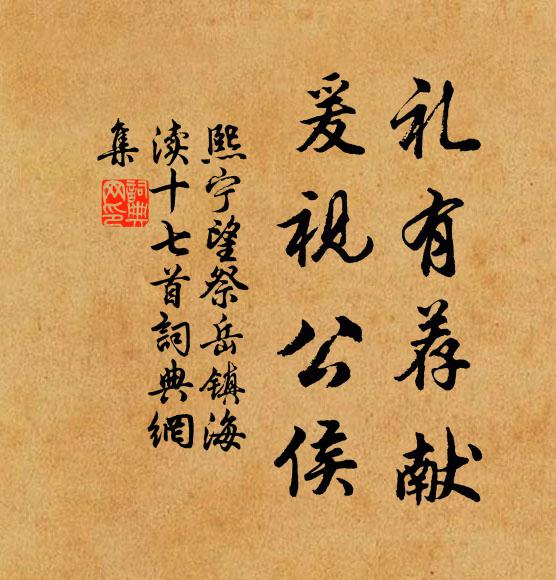 礼有荐献
爰视公侯
熙宁望祭岳镇海
渎十七首詞典網
集
詞典
网印